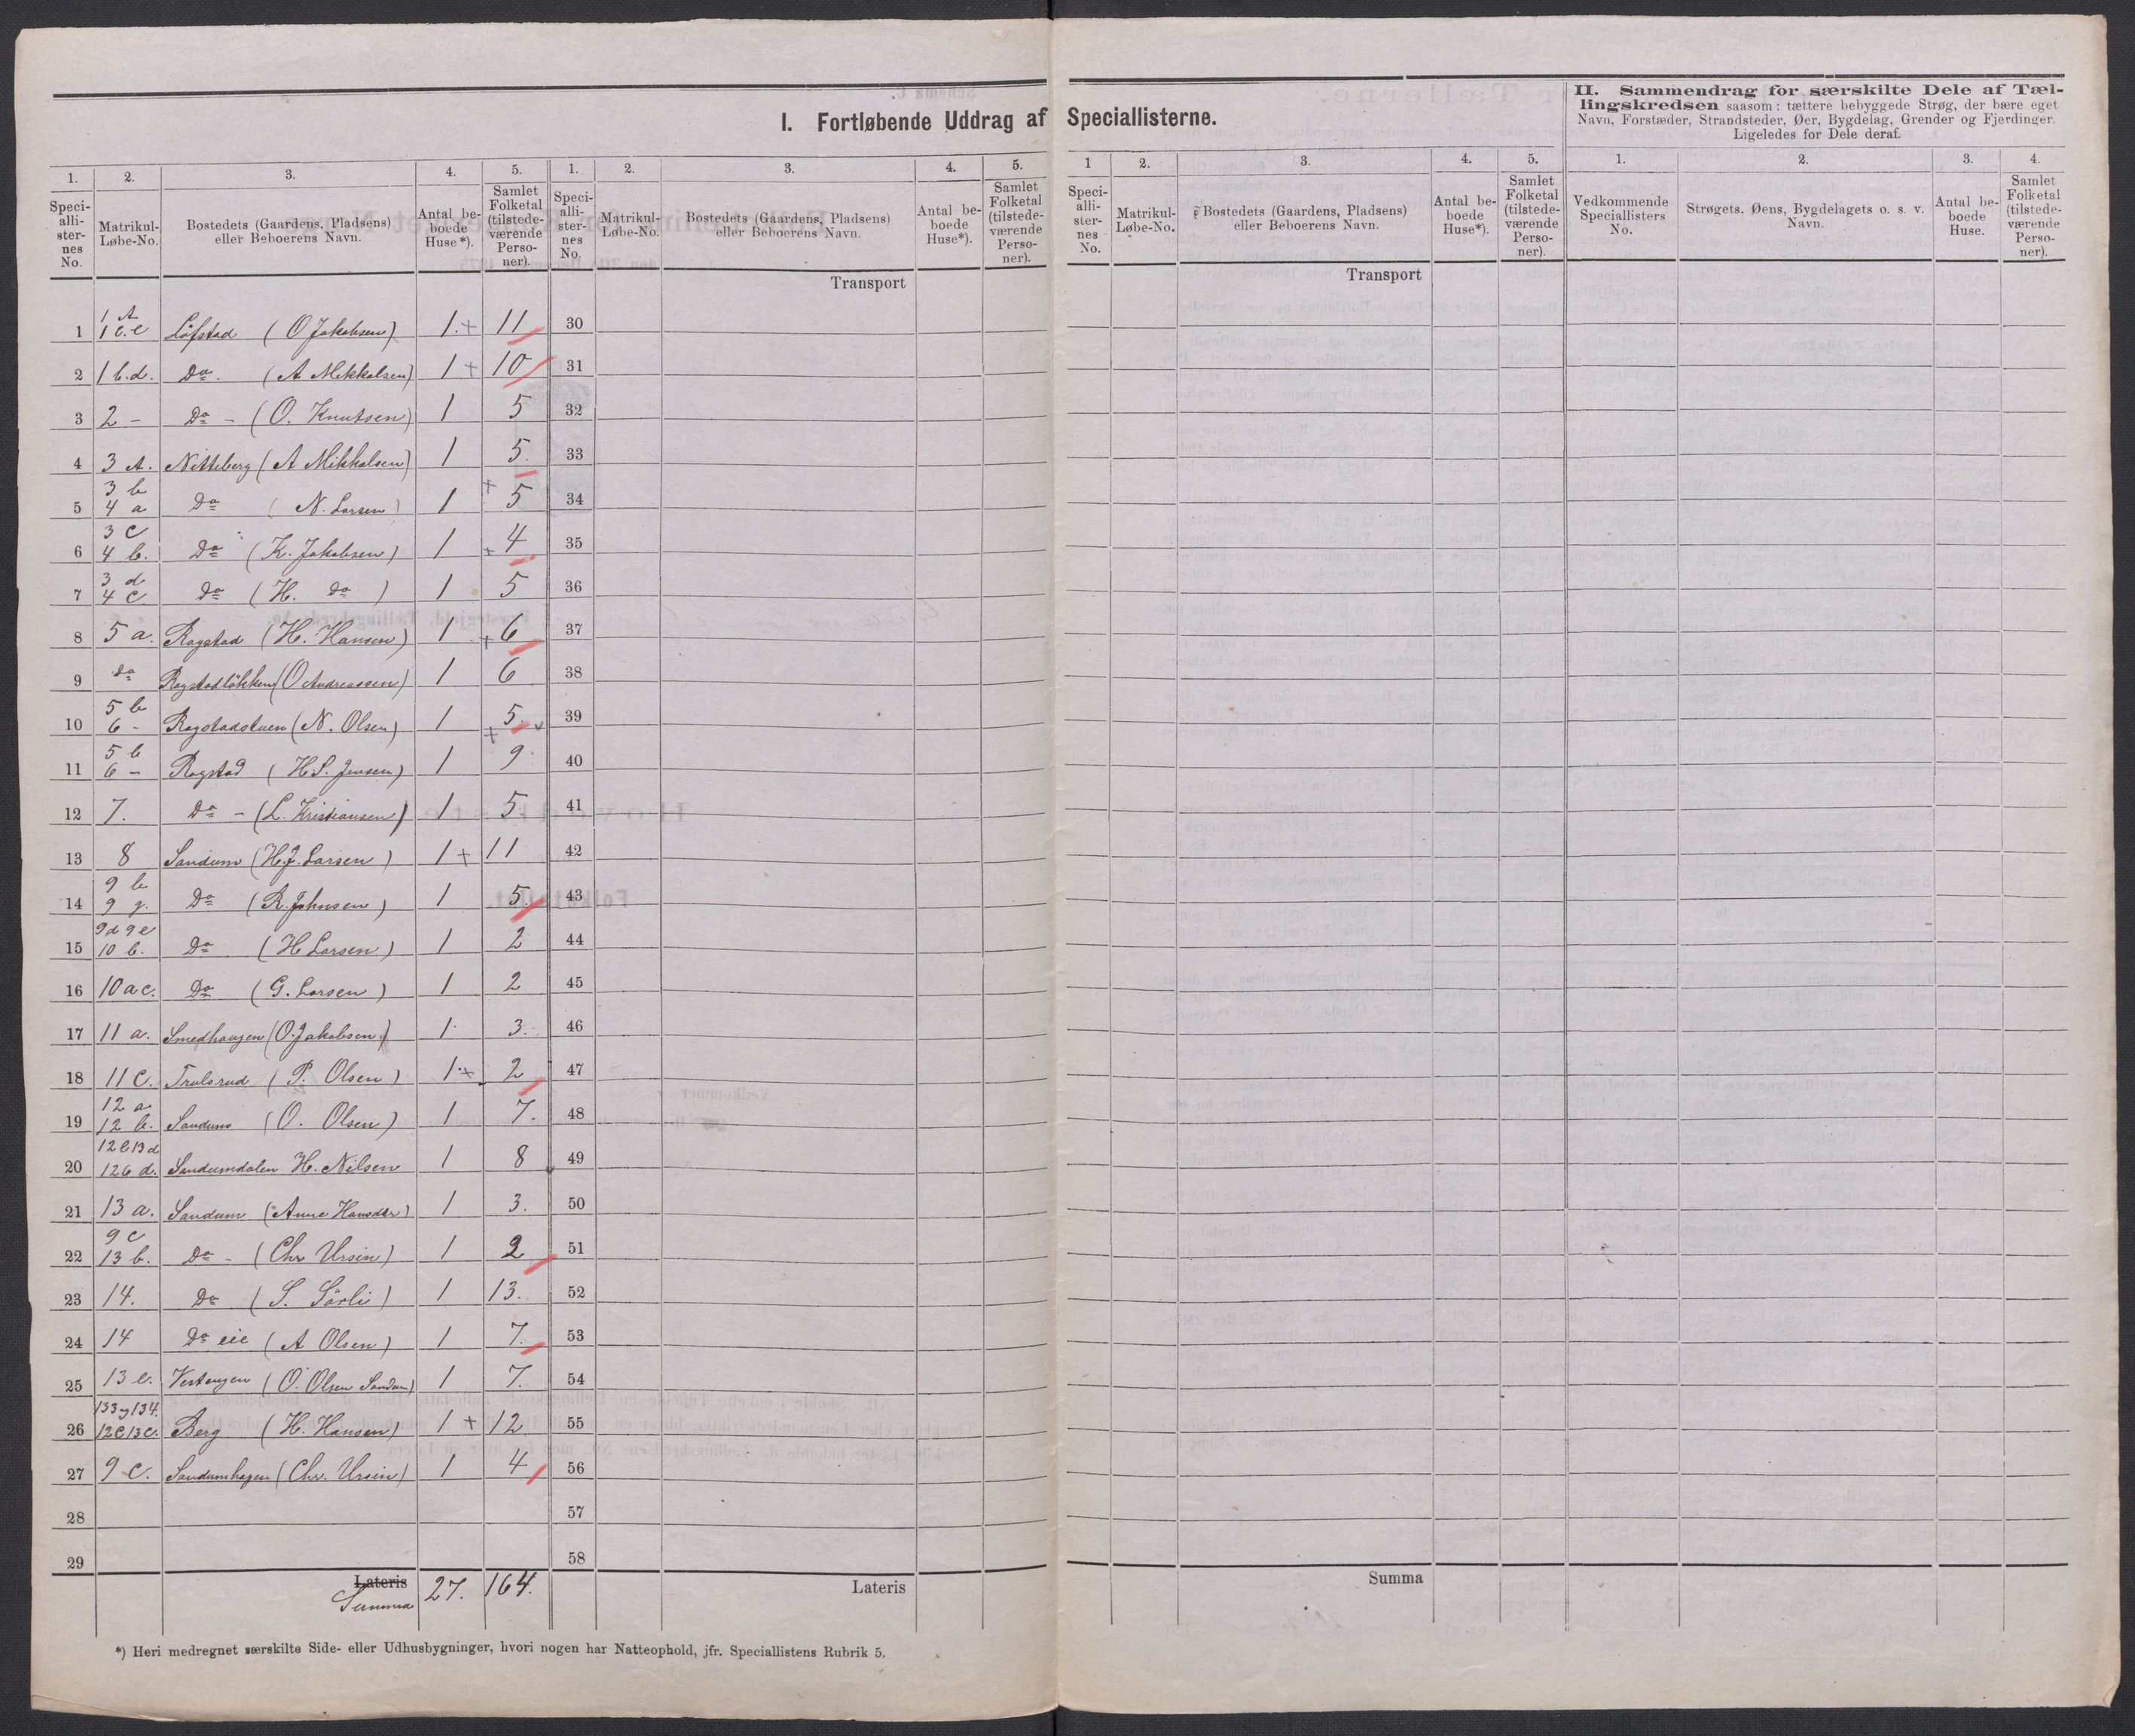 I. Fortløbende Uddrag af Speciallisterne.
II. Sammendrag for særskilte Dele af Tællingskredsen saasom: tættere bebyggede Strøg, der bære eget Navn, Forstæder, Strandsteder, Øer, Bygdelag, Grender og Fjerdinger. Ligeledes for Dele deraf.
1. 2. 3. 4. 5. 1. 2. 3. 4. 5. 1 2. 3. 4. 5. 1. 2. 3. 4.
Speciallisternes No. Matrikul-Løbe-No. Bostedets (Gaardens, Pladsens) eller Beboerens Navn. Antal beboede Huse*). Samlet Folketal (tilstedeværende Personer).
Speciallisternes No. Matrikul-Løbe-No. Bostedets (Gaardens, Pladsens) eller Beboerens Navn. Antal beboede Huse*). Samlet Folketal (tilstedeværende Personer).
Speciallisternes No. Matrikul-Løbe-No. Bostedets (Gaardens, Pladsens) eller Beboerens Navn. Antal beboede Huse*). Samlet Folketal (tilstedeværende Personer).
Vedkommende Speciallisters No. Strøgets, Øens, Bygdelagets o. s. v. Navn. Antal beboede Huse. Samlet Folketal (tilstedeværende Personer).
Transport Transport
1 1 A Løfstad (O Jakobsen) 1.+ 11 30
2 1 b.d. Do. (A Mekkelsen) 1 + 10 31
3 2 - Do - (O. Knutsen) 1 5 32
4 3 A. Nitteberg (A Mikkelsen) 1 5. 33
5 3 b 4 a Do (N. Larsen) 1 + 5 34
6 3 c 4 b. Do (K. Jakobsen) 1 + 4 35
7 3 d 4 c. Do (H. Do) 1 5 36
8 5 a. Ragstad (H. Hansen) 1 + 6 37
9 do Ragstadløkken (O Andreassen) 1 6 38
10 5 b 6 - Ragstadstuen (N. Olsen) 1 + 5. 39
11 5 b 6 - Ragstad (H S. Jensen) 1 9 40
12 7. Do - (L. Kristiansen) 1 5. 41
13 8 Sandum (H.J. Larsen) 1 + 11 42
14 9 b 9 g. Do (R. Johnsen) 1 5. 43
15 9 d 9 e 10 b. Do (H Larsen) 1 2 44
16 10 a c. Do (G. Larsen) 1 2 45
17 11 a. Smedhaugen (O. Jakobsen) 1 3. 46
18 11 c. Trulsrud (P. Olsen) 1 + 2 47
19 12 a 12 b. Sandum (O. Olsen) 1 7. 48
20 Sandumdalen H. Nilsen 1 8 49
21 13 a. Sandum (Anne Hansdtr) 1 3. 50
22 9 c 13 b. Do - (Chr Ursin) 1 2 51
23 14. Do (S. Sörli) 1 13. 52
24 14 Do eie (A Olsen) 1 7. 53
25 13 e. Vestengen (O. Olsen Sandum) 1 7. 54
26 133 y 134. 12 e 13 c. Berg (H. Hansen) 1 + 12 55
27 9 c. Sandumhagen (Chr. Ursin) 1 4 56
28 57
29 58
Lateris Summa 27. 164. Lateris Summa
*) Heri medregnet særskilte Side- eller Udhusbygninger, hvori nogen har Natteophold, jfr. Speciallistens Rubrik 5.